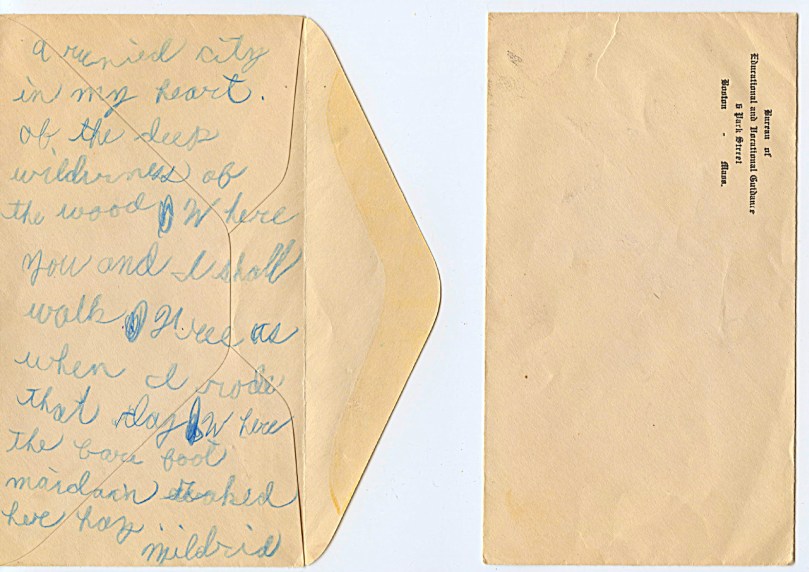 a runied city
in my heart.
of the deep
wilderness of
the wood Where
you and I shall
walk free as
when I rode
that day Where
the bare foot
maidain raked
here hay
mildrid
Bureau of
Educational and Vocational Guidance
6 Park Street
Boston - Mass.